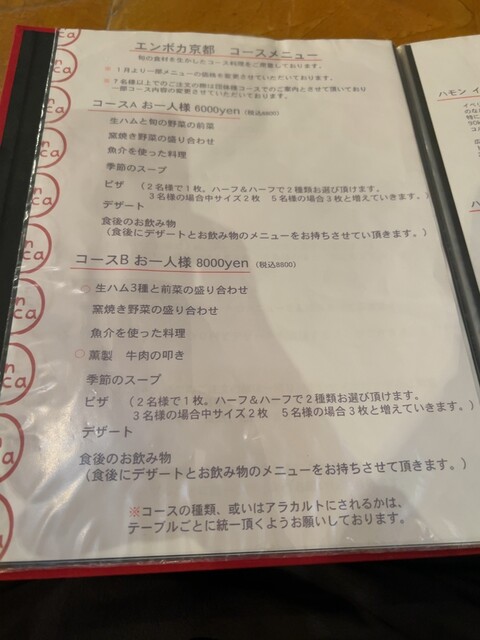 エンボカ京都　コースメニュー
旬の食材を生かしたコース料理をご用意しております。
※ 1月より一部メニューの価格を変更させていただいております。
※ 7名様以上でのご注文の際は団体様コースでのご案内とさせて頂いており
一部コース内容の変更させていただいております。
コースA お一人様 6000yen（税込6600）
生ハムと旬の野菜の前菜
窯焼き野菜の盛り合わせ
魚介を使った料理
季節のスープ
ピザ　（２名様で１枚。ハーフ＆ハーフで２種類お選び頂けます。
３名様の場合中サイズ２枚　５名様の場合３枚と増えていきます。）
デザート
食後のお飲み物
（食後にデザートとお飲み物のメニューをお持ちさせてい頂きます。）
コースB お一人様 8000yen（税込8800）
○ 生ハム3種と前菜の盛り合わせ
窯焼き野菜の盛り合わせ
魚介を使った料理
○ 薫製　牛肉の叩き
季節のスープ
ピザ　（２名様で１枚。ハーフ＆ハーフで２種類お選び頂けます。
３名様の場合中サイズ２枚　５名様の場合３枚と増えていきます。）
デザート
食後のお飲み物
（食後にデザートとお飲み物のメニューをお持ちさせて頂きます。）
※コースの種類、或いはアラカルトにされるかは、
テーブルごとに統一頂くようお願いしております。
ハモン イ